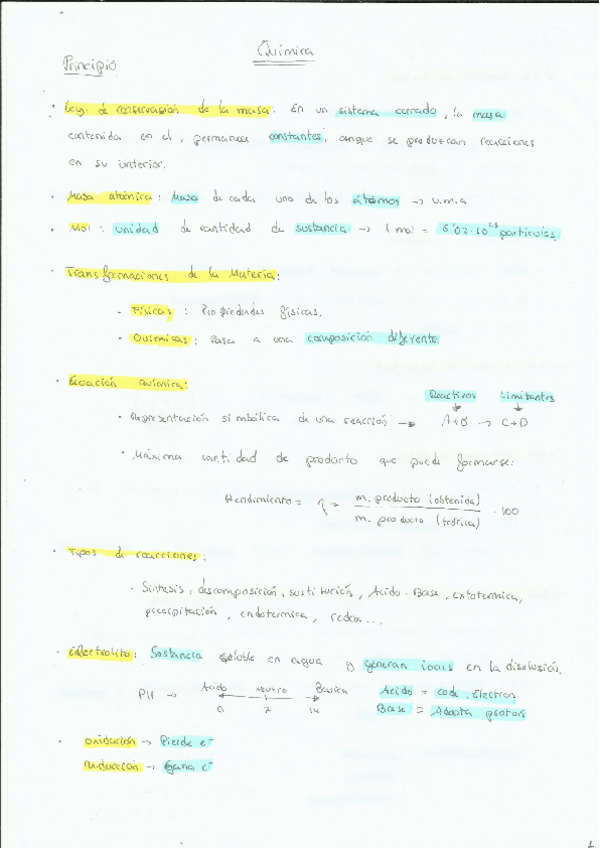 Química
Principio
· Ley de conservación de la masa: En un sistema cerrado, la masa
contenida en el, permanece constantes, aunque se produzcan reacciones
en su interior.
· Masa atómica: Masa de cada uno de los átomos → u.m.a
· Mol: unidad de cantidad de sustancia → 1 mol = 6'02·10²³ partículas.
· Transformaciones de la Materia:
- Físicas: Propiedades físicas.
- Químicas: Pasa a una composición diferente.
· Ecuación Química:
Reactivos Limitantes
· Representación simbólica de una reacción → A+B → C+D
· Máxima cantidad de producto que puede formarse:
Rendimiento = η → m. producto (obtenida) / m. producto (teórica) · 100
· Tipos de reacciones:
· Síntesis, descomposición, sustitución, Acido-Base, exotermica,
precipitación, endotermica, redox...
· Electrolito: Sustancia soluble en agua y generan iones en la disolución.
PH → Acido Neutro Basica Acido = cede electron
0 7 14 Base = Adopta proton
· Oxidación → Pierde e⁻
Reducción → Gana e⁻
1